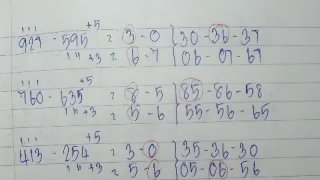 +5
924 - 595 = 3 - 0 { 30 - 36 - 37
14 +3 = 6 - 7 { 06 - 07 - 67
+5
760 - 635 = 8 - 5 { 85 - 86 - 58
14 +3 = 5 - 6 { 55 - 56 - 65
+5
413 - 254 = 3 - 0 { 35 - 36 - 30
14 +3 = 5 - 6 { 05 - 06 - 56